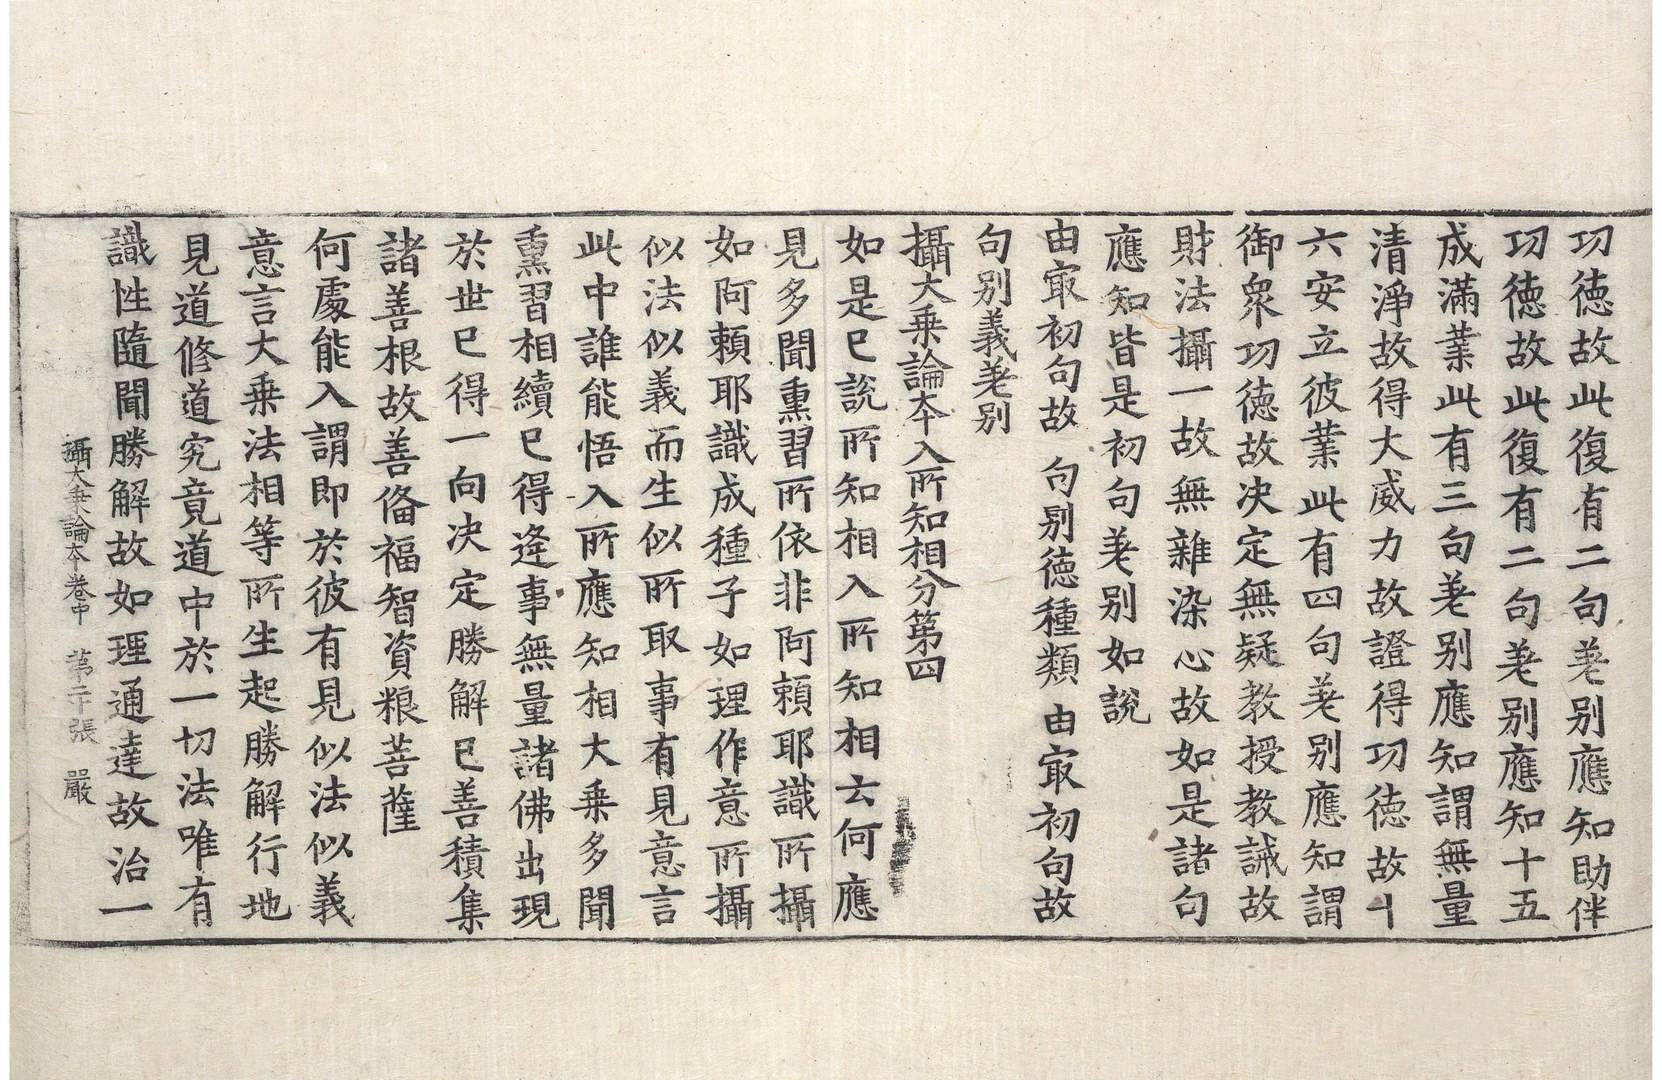 功徳故此復有二句差别應知助伴
功徳故此復有二句差别應知十五
成滿業此有三句差别應知謂無量
清淨故得大威力故證得功徳故十
六安立彼業此有四句差别應知謂
御衆功徳故决定無疑教授教誡故
財法攝一故無雜染心故如是諸句
應知皆是初句差别如說
由㝡初句故　句别徳種類　由㝡初句故
句别義差别
攝大乗論本入所知相分第四
如是已說所知相入所知相云何應
見多聞熏習所依非阿頼耶識所攝
如阿頼耶識成種子如理作意所攝
似法似義而生似所取事有見意言
此中誰能悟入所應知相大乗多聞
熏習相續已得逢事無量諸佛出現
於世已得一向决定勝解已善積集
諸善根故善俻福智資粮菩薩
何處能入謂即於彼有見似法似義
意言大乗法相等所生起勝解行地
見道修道究竟道中於一切法唯有
識性隨聞勝解故如理通達故治一
攝大乗論本卷中　第二十張　嚴